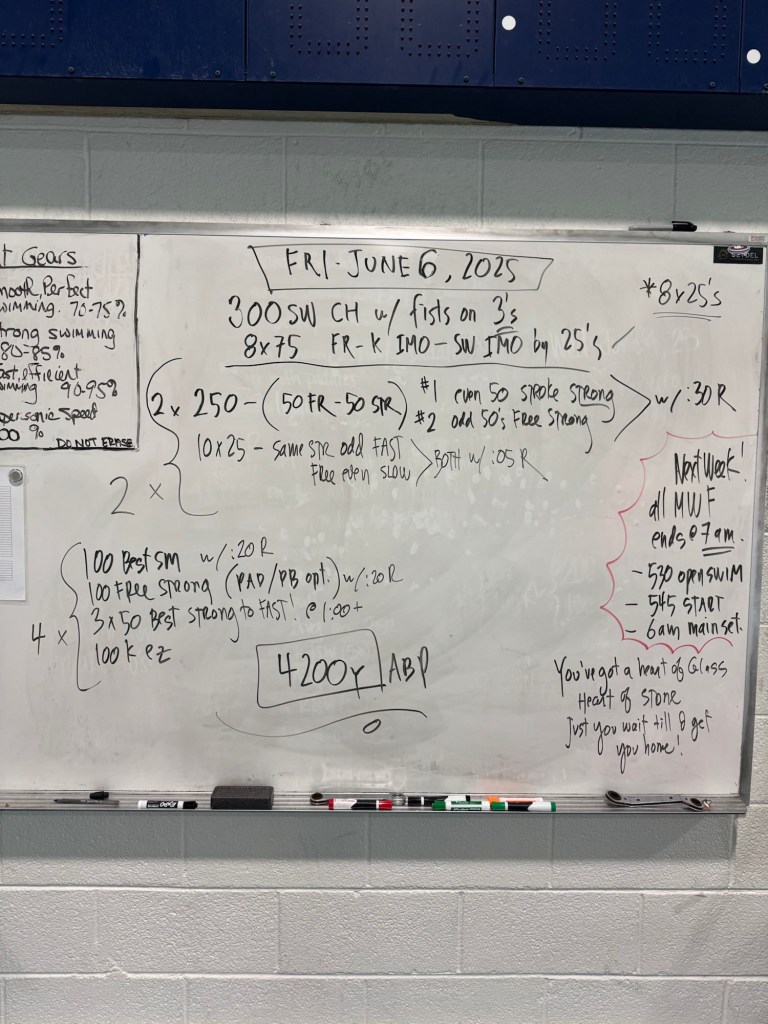 t Gears
mooth, Perfect
wimming. 70-75%
trong swimming
80-85%
ast, efficient
imming 90-95%
personic speed
00 %
DO NOT ERASE
FRI - JUNE 6, 2025
*8x25's
300 SW CH w/ fists on 3's
8x75 FR-K IMO-SW IMO by 25's
2 x
2 x 250 - (50 FR-50 STR) #1 even 50 STROKE STRONG
#2 odd 50's Free Strong
w/ :30 R
10x25 - Same STR odd FAST
Free even SLOW
BOTH w/ :05 R
4 x
100 Best SM w/ :20 R
100 Free Strong (PAD/PB opt.) w/ :20 R
3x50 Best STRONG to FAST! @ 1:00+
100 K ez
4200y ABP
Next Week!
all MWF
ends @ 7am.
- 530 open SWIM
- 545 START
- 6am main set.
You've got a heart of Glass
Heart of STONE
Just you wait till I get
you home!